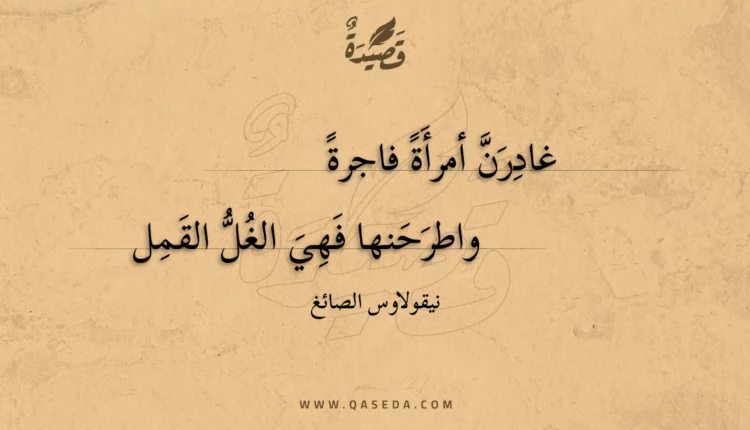 قَصِيْدَةٌ
غادِرَنَّ أمرأَةً فاجرةً
واطرَحَنها فَهِيَ الغُلُّ القَمِل
نيقولاوس الصائغ
WWW.QASEDA.COM